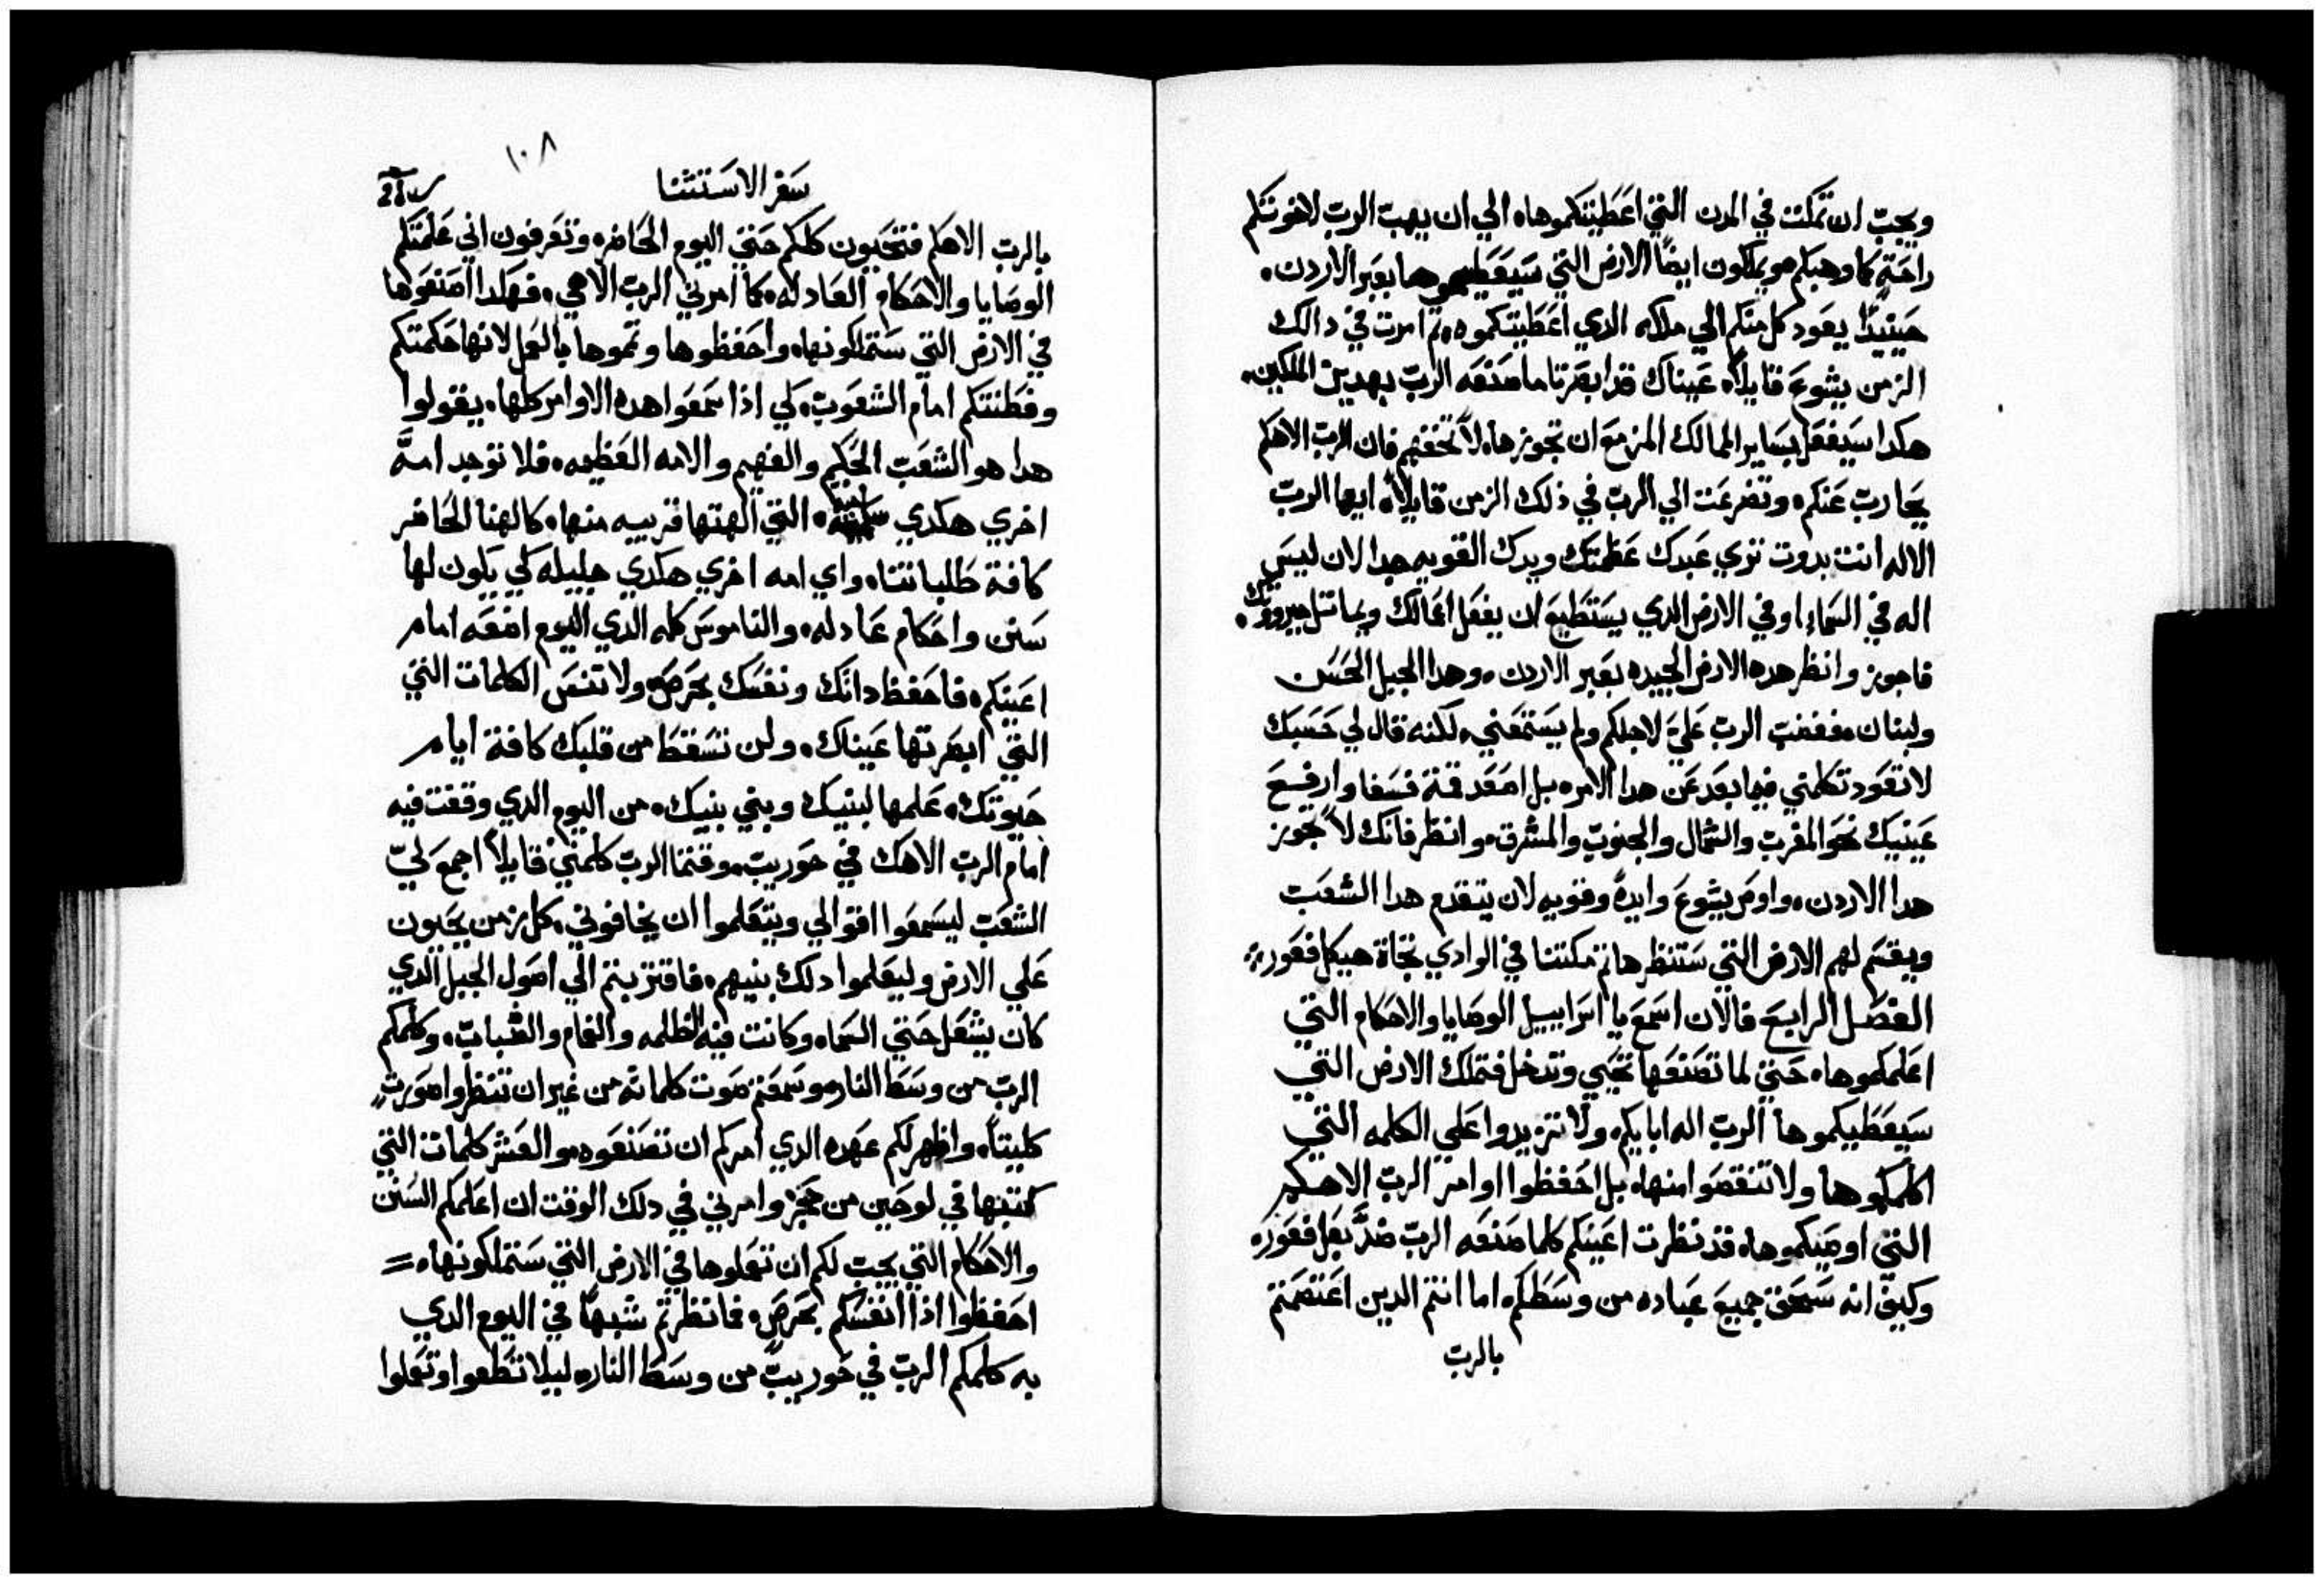 ويجب ان تمكث في المدن التي اعطيتكموها، الي ان يهب الرب لاخوتكم
راحةً كما وهبكم، ويملكون ايضًا الارض التي سيعطيهموها بعبر الاردن.
حينيدًا يعود كل منكم الي ملاكه الدي اعطيتكموه، ثم امرت في دالك
الزمن يشوع قايلاً، عيناك قد ابصرتا ما صنعه الرب بهدين الملكين،
هكدا سيفعل بساير الممالك المزمع ان تجوزها، لا تخفهم فان الرب الاهكم
يحارب عنكم، وتضرعت الي الرب في ذلك الزمن قايلاً، ايها الرب
الاله انت بدوت تري عبدك عظمتك ويدك القويه جدا لان ليس
اله في السماء او في الارض الدي يستطيع ان يفعل اعمالك ويماثل جبروتك.
فاجوز وانظر هده الارض الجيده بعبر الاردن، وهدا الجبل الحسن
ولبنان، فغضب الرب علي لاجلكم ولم يستمعني، لكنه قال لي حسبك
لا تعود تكلمني فيما بعد عن هدا الامر، بل اصعد قمة فسغا وارفع
عينيك نحو المغرب والشمال والجنوب والمشرق، وانظر فانك لا تجوز
هدا الاردن، واوص يشوع وايده وقويه لان يتقدم هدا الشعب
ويقسم لهم الارض التي ستنظرها، ثم مكثنا في الوادي تجاة هيكل فغور،
الفصل الرابع فالان اسمع يا اسراييل الوصايا والاحكام التي
اعلمكموها، حتي لما تصنعها تحيي وتدخل فتملك الارض التي
سيعطيكموها الرب اله ابايكم، ولا تزيدوا علي الكلمه التي
اكلمكموها ولا تنقصوا منها، بل احفظوا اوامر الرب الاهكم
التي اوصيكموها، قد نظرت اعينكم كلما صنعه الرب ضدَّ بعل فغور،
وكيف انه سحق جميع عباده من وسطكم، اما انتم الدين اعتصمتم
بالرب
١٠٨
سفر الاستثنا
بالرب الاهكم فتحيون كلكم حتي اليوم الحاضر، وتعرفون اني علمتكم
الوصايا والاحكام العادله، كما امرني الرب الاهي، فهكدا اصنعوها
في الارض التي ستملكونها، واحفظوها وتموها بالعمل لانها حكمتكم
وفطنتكم امام الشعوب، لكي اذا سمعوا هده الاوامر كلها، يقولوا
هدا هو الشعب الحكيم والفهيم والامه العظيمه، فلا توجد امَّه
اخري هكدي التي الهتها قريبه منها، كالهنا الحاضر
كافة طلباتنا، واي امه اخري هكدي جليله لكي يكون لها
سنن واحكام عادله، والناموس كله الدي اليوم اضعه امام
اعينكم، فاحفظ داتك ونفسك بحرص، ولا تنس الكلمات التي
التي ابصرتها عيناك، ولن تسقط من قلبك كافة ايام
حيوتك، علمها لبنيك وبني بنيك، من اليوم الدي وقفت فيه
امام الرب الاهك في حوريب، وقتما الرب كلمني قايلاً اجمع لي
الشعب ليسمعوا اقوالي ويتعلموا ان يخافوني، كل زمن يحيون
علي الارض وليعلموا دلك بنيهم، فاقتربتم الي اصول الجبل الدي
كان يشعل حتي السماء، وكانت فيه الظلمه والغمام والضباب، وكلمكم
الرب من وسط النار، وسمعتم صوت كلماته من غير ان تنظروا صورت
كليتاً، واظهر لكم عهده الدي امركم ان تصنعوه، والعشر كلمات التي
كتبها في لوحين من حجر، وامرني في دلك الوقت ان اعلمكم السنن
والاحكام التي يجب لكم ان تعملوها في الارض التي ستملكونها، =
احفظوا اذا انفسكم بحرص، فانظرتم شبهًا في اليوم الدي
به كلمكم الرب في حوريب من وسط النار، ليلا تطغوا وتعملوا